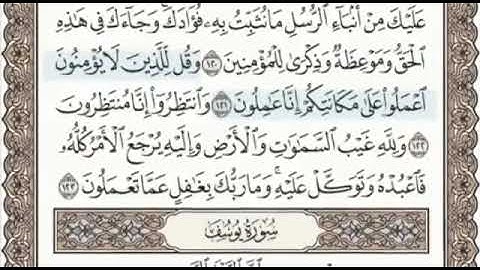 عَلَيْكَ مِنْ أَنۢبَآءِ ٱلرُّسُلِ مَا نُثَبِّتُ بِهِۦ فُؤَادَكَ ۚ وَجَآءَكَ فِى هَٰذِهِ
ٱلْحَقُّ وَمَوْعِظَةٌ وَذِكْرَىٰ لِلْمُؤْمِنِينَ ١٢٠ وَقُل لِّلَّذِينَ لَا يُؤْمِنُونَ
ٱعْمَلُوا۟ عَلَىٰ مَكَانَتِكُمْ إِنَّا عَٰمِلُونَ ١٢١ وَٱنتَظِرُوٓا۟ إِنَّا مُنتَظِرُونَ
١٢٢ وَلِلَّهِ غَيْبُ ٱلسَّمَٰوَٰتِ وَٱلْأَرْضِ وَإِلَيْهِ يُرْجَعُ ٱلْأَمْرُ كُلُّهُۥ
فَٱعْبُدْهُ وَتَوَكَّلْ عَلَيْهِ ۚ وَمَا رَبُّكَ بِغَٰفِلٍ عَمَّا تَعْمَلُونَ ١٢٣
سُورَةُ يُوسُفَ